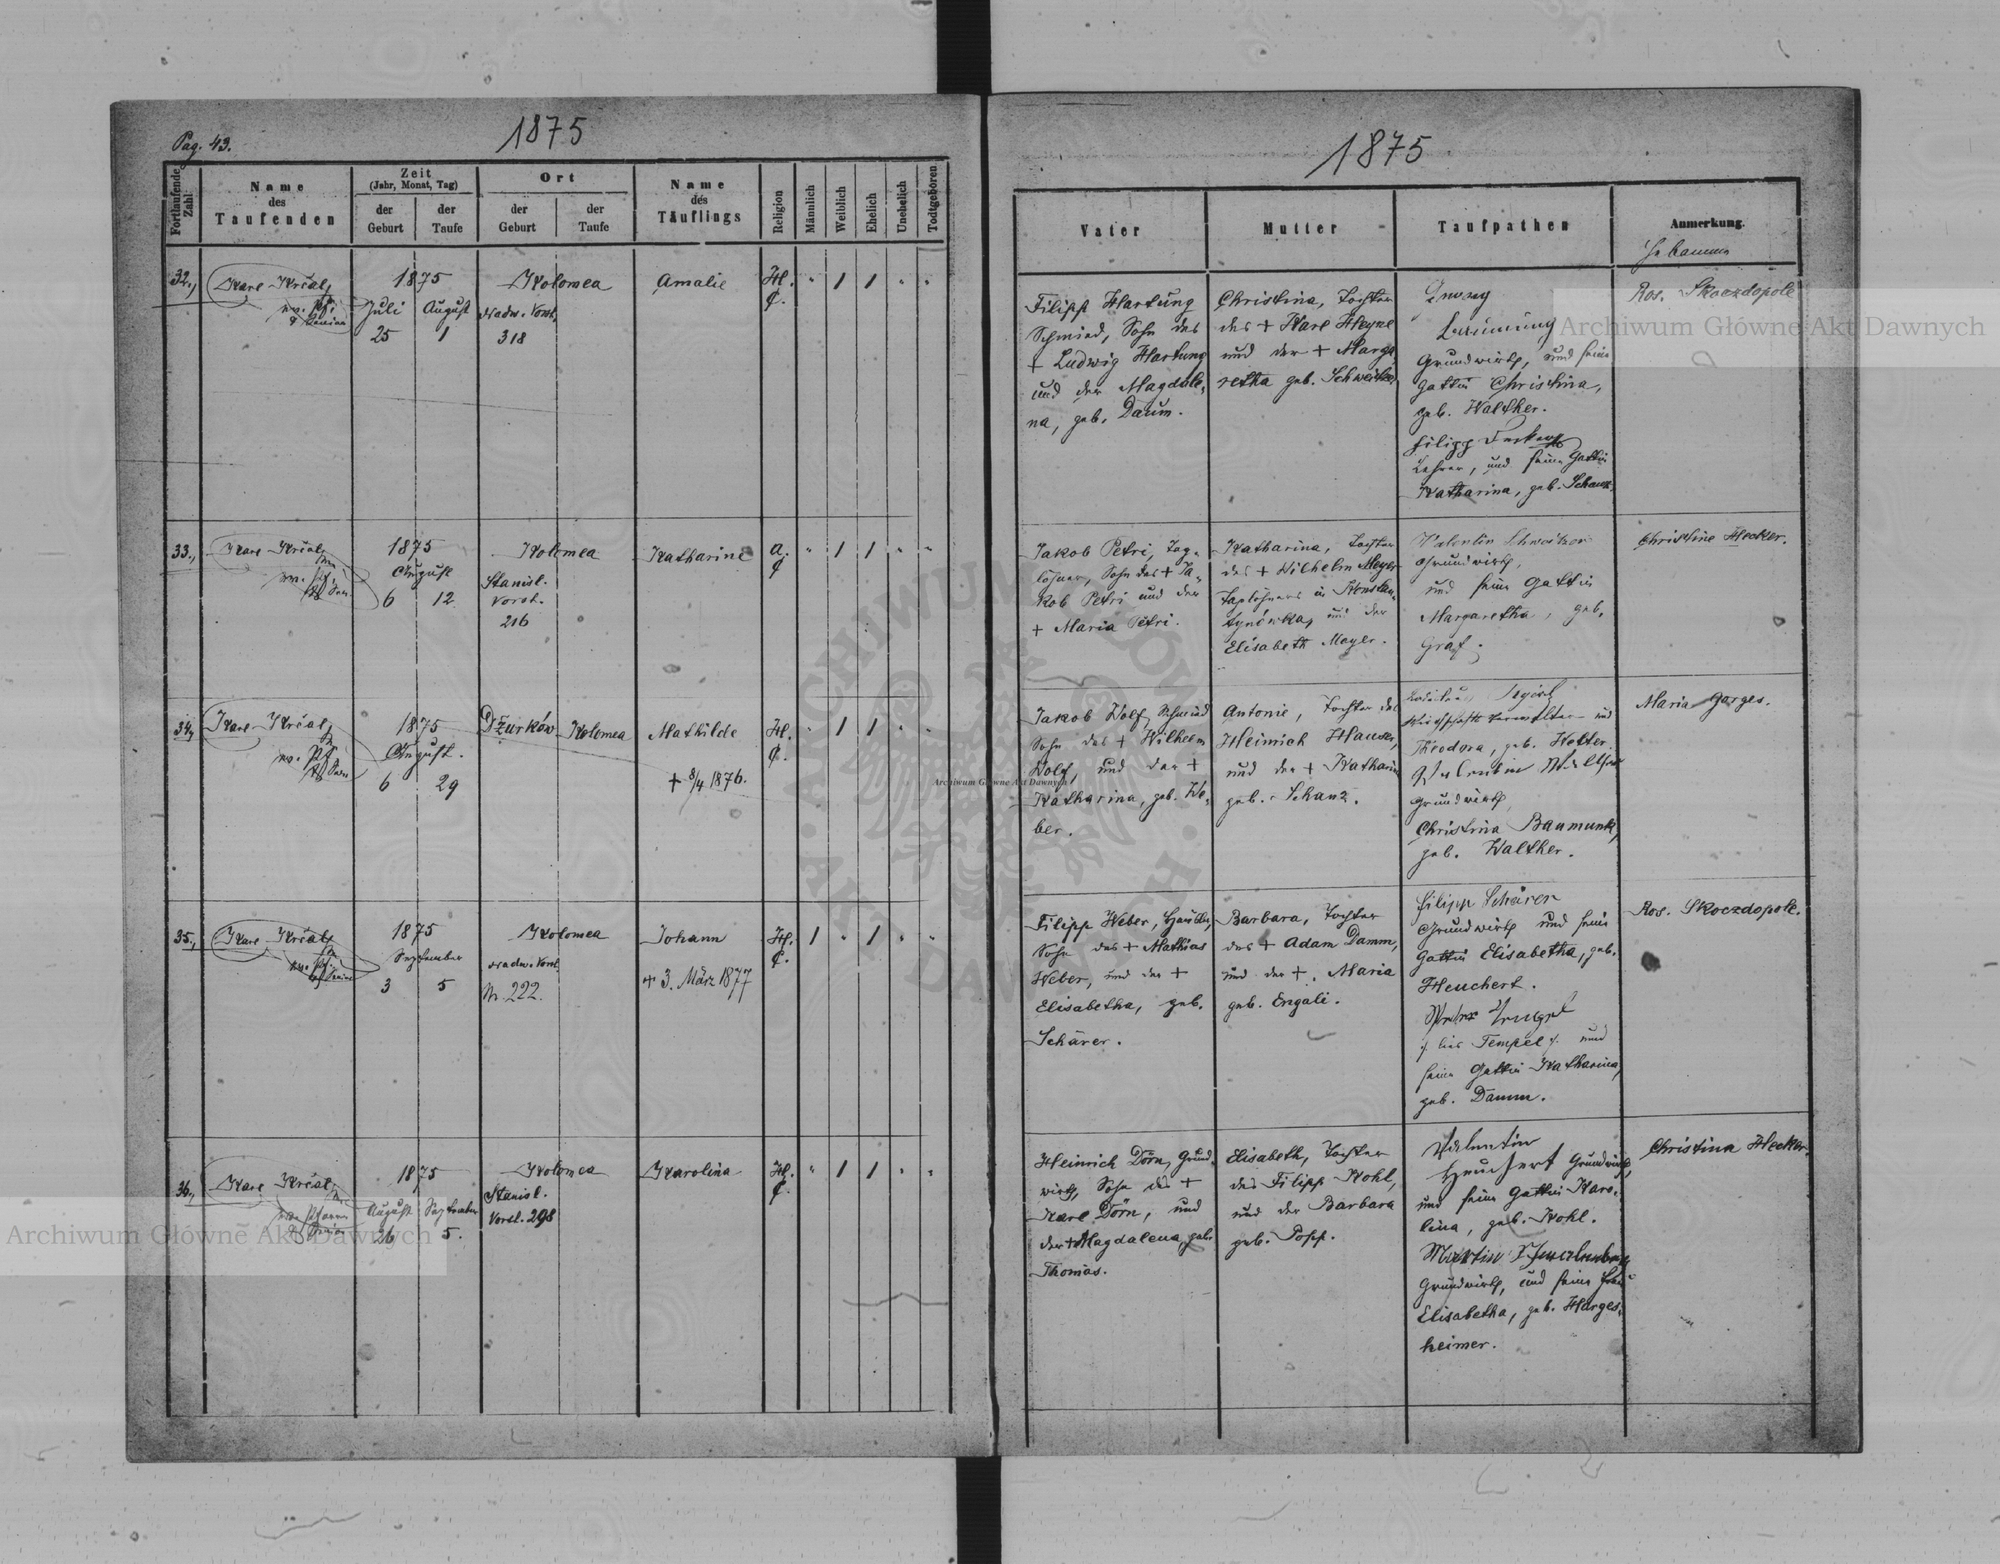 Pag. 43.
1875
Fortlaufende Zahl
Name des Taufenden
Zeit (Jahr, Monat, Tag)
der Geburt
der Taufe
Ort
der Geburt
der Taufe
Name des Täuflings
Religion
Männlich
Weiblich
Ehelich
Unehelich
Todtgeboren
32.,
Karl Králik
1875
Juli
August
25
1
Kolomea
Nadw. Vorst.
318
Amalie
H. C.
" 1 1 " "
33.,
1875
August
6
12
Kolomea
Stanisl.
Vorst.
216
Katharine
A. C.
" 1 1 " "
34.,
1875
August.
6
29
Dżurków
Kolomea
Mathilde
+ 8/4 1876.
H. C.
" 1 1 " "
35.,
1875
September
3
5
Kolomea
Nadw. Vorst.
Nr. 222.
Johann
+ 3. März 1877
H. C.
1 " 1 " "
36.,
1875
August
September
26
5.
Kolomea
Stanisl.
Vorst. 298
Karolina
H. C.
" 1 1 " "
1875
Vater
Mutter
Taufpathen
Anmerkung.
Hebamme
Filipp Hartung
Schmied, Sohn des
+ Ludwig Hartung
und der Magdale-
na, geb. Daum.
Christina, Tochter
des + Karl Heyne
und der + Marga
retha geb. Schweitzer
Grundwirth, und seine
Gattin Christina,
geb. Walther.
Filipp
Lehrer, und seine Gattin
Katharina, geb. Schanz.
Ros. Skoczdopole
Jakob Petri, Tag-
löhner, Sohn des + Ja-
kob Petri und der
+ Maria Petri.
Katharina, Tochter
des + Wilhelm Meyer
Taglöhners in Konstan-
tynówka, und der
Elisabeth Mayer.
Valentin Schweitzer
Grundwirth,
und seine Gattin
Margaretha, geb.
Graf.
Christine Hecker.
Jakob Wolf, Schmied
Sohn des + Wilhelm
Wolf, und der +
Katharina, geb. We-
ber.
Antonie, Tochter des
Heinrich Hauser,
und der + Katharina
geb. Schanz.
Wirthschaftsverwalter und
Theodora, geb. Wolter.
Valentin Walther
Grundwirth,
Christina Baumunk,
geb. Walther.
Maria Gorges.
Filipp Weber,
Sohn des + Mathias
Weber, und der +
Elisabetha, geb.
Schärer.
Barbara, Tochter
des + Adam Damm,
und der + Maria
geb. Engali.
Filipp Schärer
Grundwirth und seine
Gattin Elisabetha, geb.
Heuchert.
Peter
Tempel und
seine Gattin Katharina,
geb. Damm.
Ros. Skoczdopole.
Heinrich Dörn, Grund-
wirth, Sohn des +
Karl Dörn, und
der + Magdalena, geb.
Thomas.
Elisabeth, Tochter
des Filipp Kohl,
und der Barbara
geb. Popp.
Valentin
Heuchert Grundwirth,
und seine Gattin Karo-
lina, geb. Kohl.
Martin
Grundwirth, und seine Frau
Elisabetha, geb. Harges-
heimer.
Christina Hecker.
Archiwum Główne Akt Dawnych
Archiwum Główne Akt Dawnych
Archiwum Główne Akt Dawnych